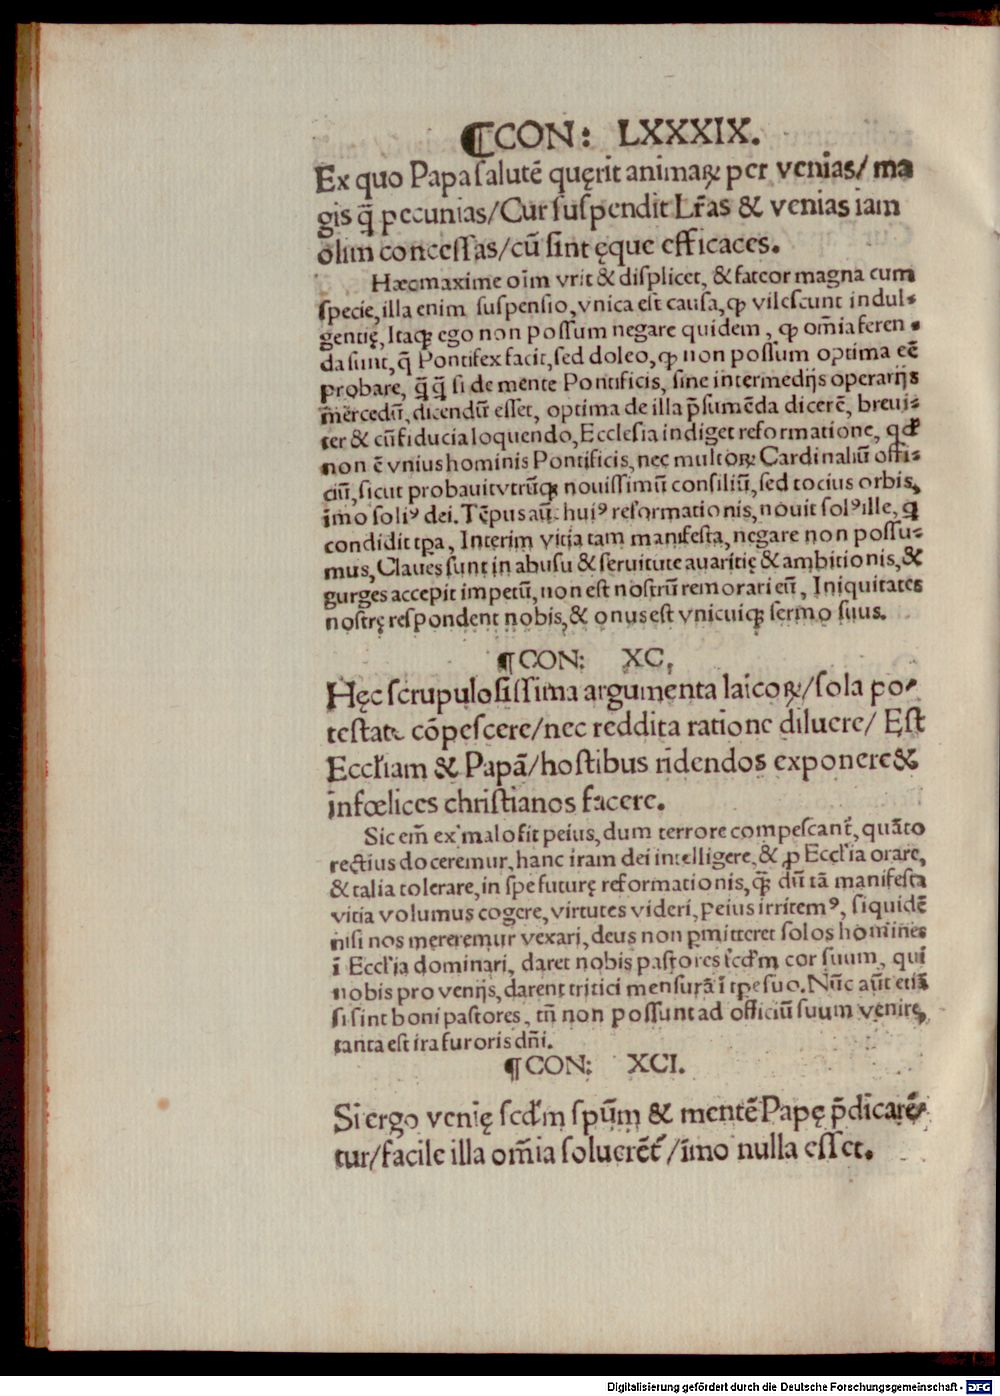 ¶CON: LXXXIX.
Ex quo Papa salutē quęrit animaꝝ per venias/ ma
gis q̄ pecunias/Cur suspendit Lr̄as & venias iam
olim concessas/cū sint ęque efficaces.
Hæc maxime oīm vrit & displicet, & fateor magna cum
specie, illa enim suspensio, vnica est causa, ꝙ vilescunt indul⸗
gentię, Itaqꝫ ego non possum negare quidem, ꝙ om̄ia feren⸗
da sunt, q̄ Pontifex facit, sed doleo, ꝙ non possum optima eē
probare, q̄q̄ si de mente Pontificis, sine intermedijs operarijs
mercedū, dicendū esset, optima de illa p̄sumēda dicerē, breui⸗
ter & cū fiducia loquendo, Ecclesia indiget reformatione, qd̓
non ē vnius hominis Pontificis, nec multoꝝ Cardinaliū offi⸗
ciū, sicut probauit vtrūqꝫ nouissimū consiliū, sed tocius orbis,
īmo soliꝰ dei. Tēpus aū: huiꝰ reformationis, nouit solꝰ ille, q
condidit tp̄a, Interim vitia tam manifesta, negare non possu⸗
mus, Claues sunt in abusu & seruitute auaritię & ambitionis, &
gurges accepit impetū, non est nostrū remorari eū, Iniquitates
nostrę respondent nobis, & onus est vnicuiqꝫ sermo suus.
¶CON: XC.
Hęc scrupulosissima argumenta laicoꝝ/sola po⸗
testate cōpescere/nec reddita ratione diluere/ Est
Eccl̓iam & Papā/hostibus ridendos exponere &
infœlices christianos facere.
Sic em̄ ex malo fit peius, dum terrore compescant̓, quāto
rectius doceremur, hanc iram dei intelligere, & ꝓ Eccl̓ia orare,
& talia tolerare, in spe futurę reformationis, q̄ꝫ dū tā manifesta
vitia volumus cogere, virtutes videri, peius irritemꝰ, siquidē
nisi nos mereremur vexari, deus non ꝑmitteret solos homines
ī Eccl̓ia dominari, daret nobis pastores scd̓m cor suum, qui
nobis pro venijs, darent tritici mensurā ī tp̄e suo. Nūc aūt etiā
si sint boni pastores, tn̄ non possunt ad officiū suum venire,
tanta est ira furoris dn̄i.
¶CON: XCI.
Si ergo venię scd̓m spūm & mentē Papę p̄dicarē⸗
tur/facile illa om̄ia soluerēt̓/īmo nulla esset.
Digitalisierung gefördert durch die Deutsche Forschungsgemeinschaft - DFG